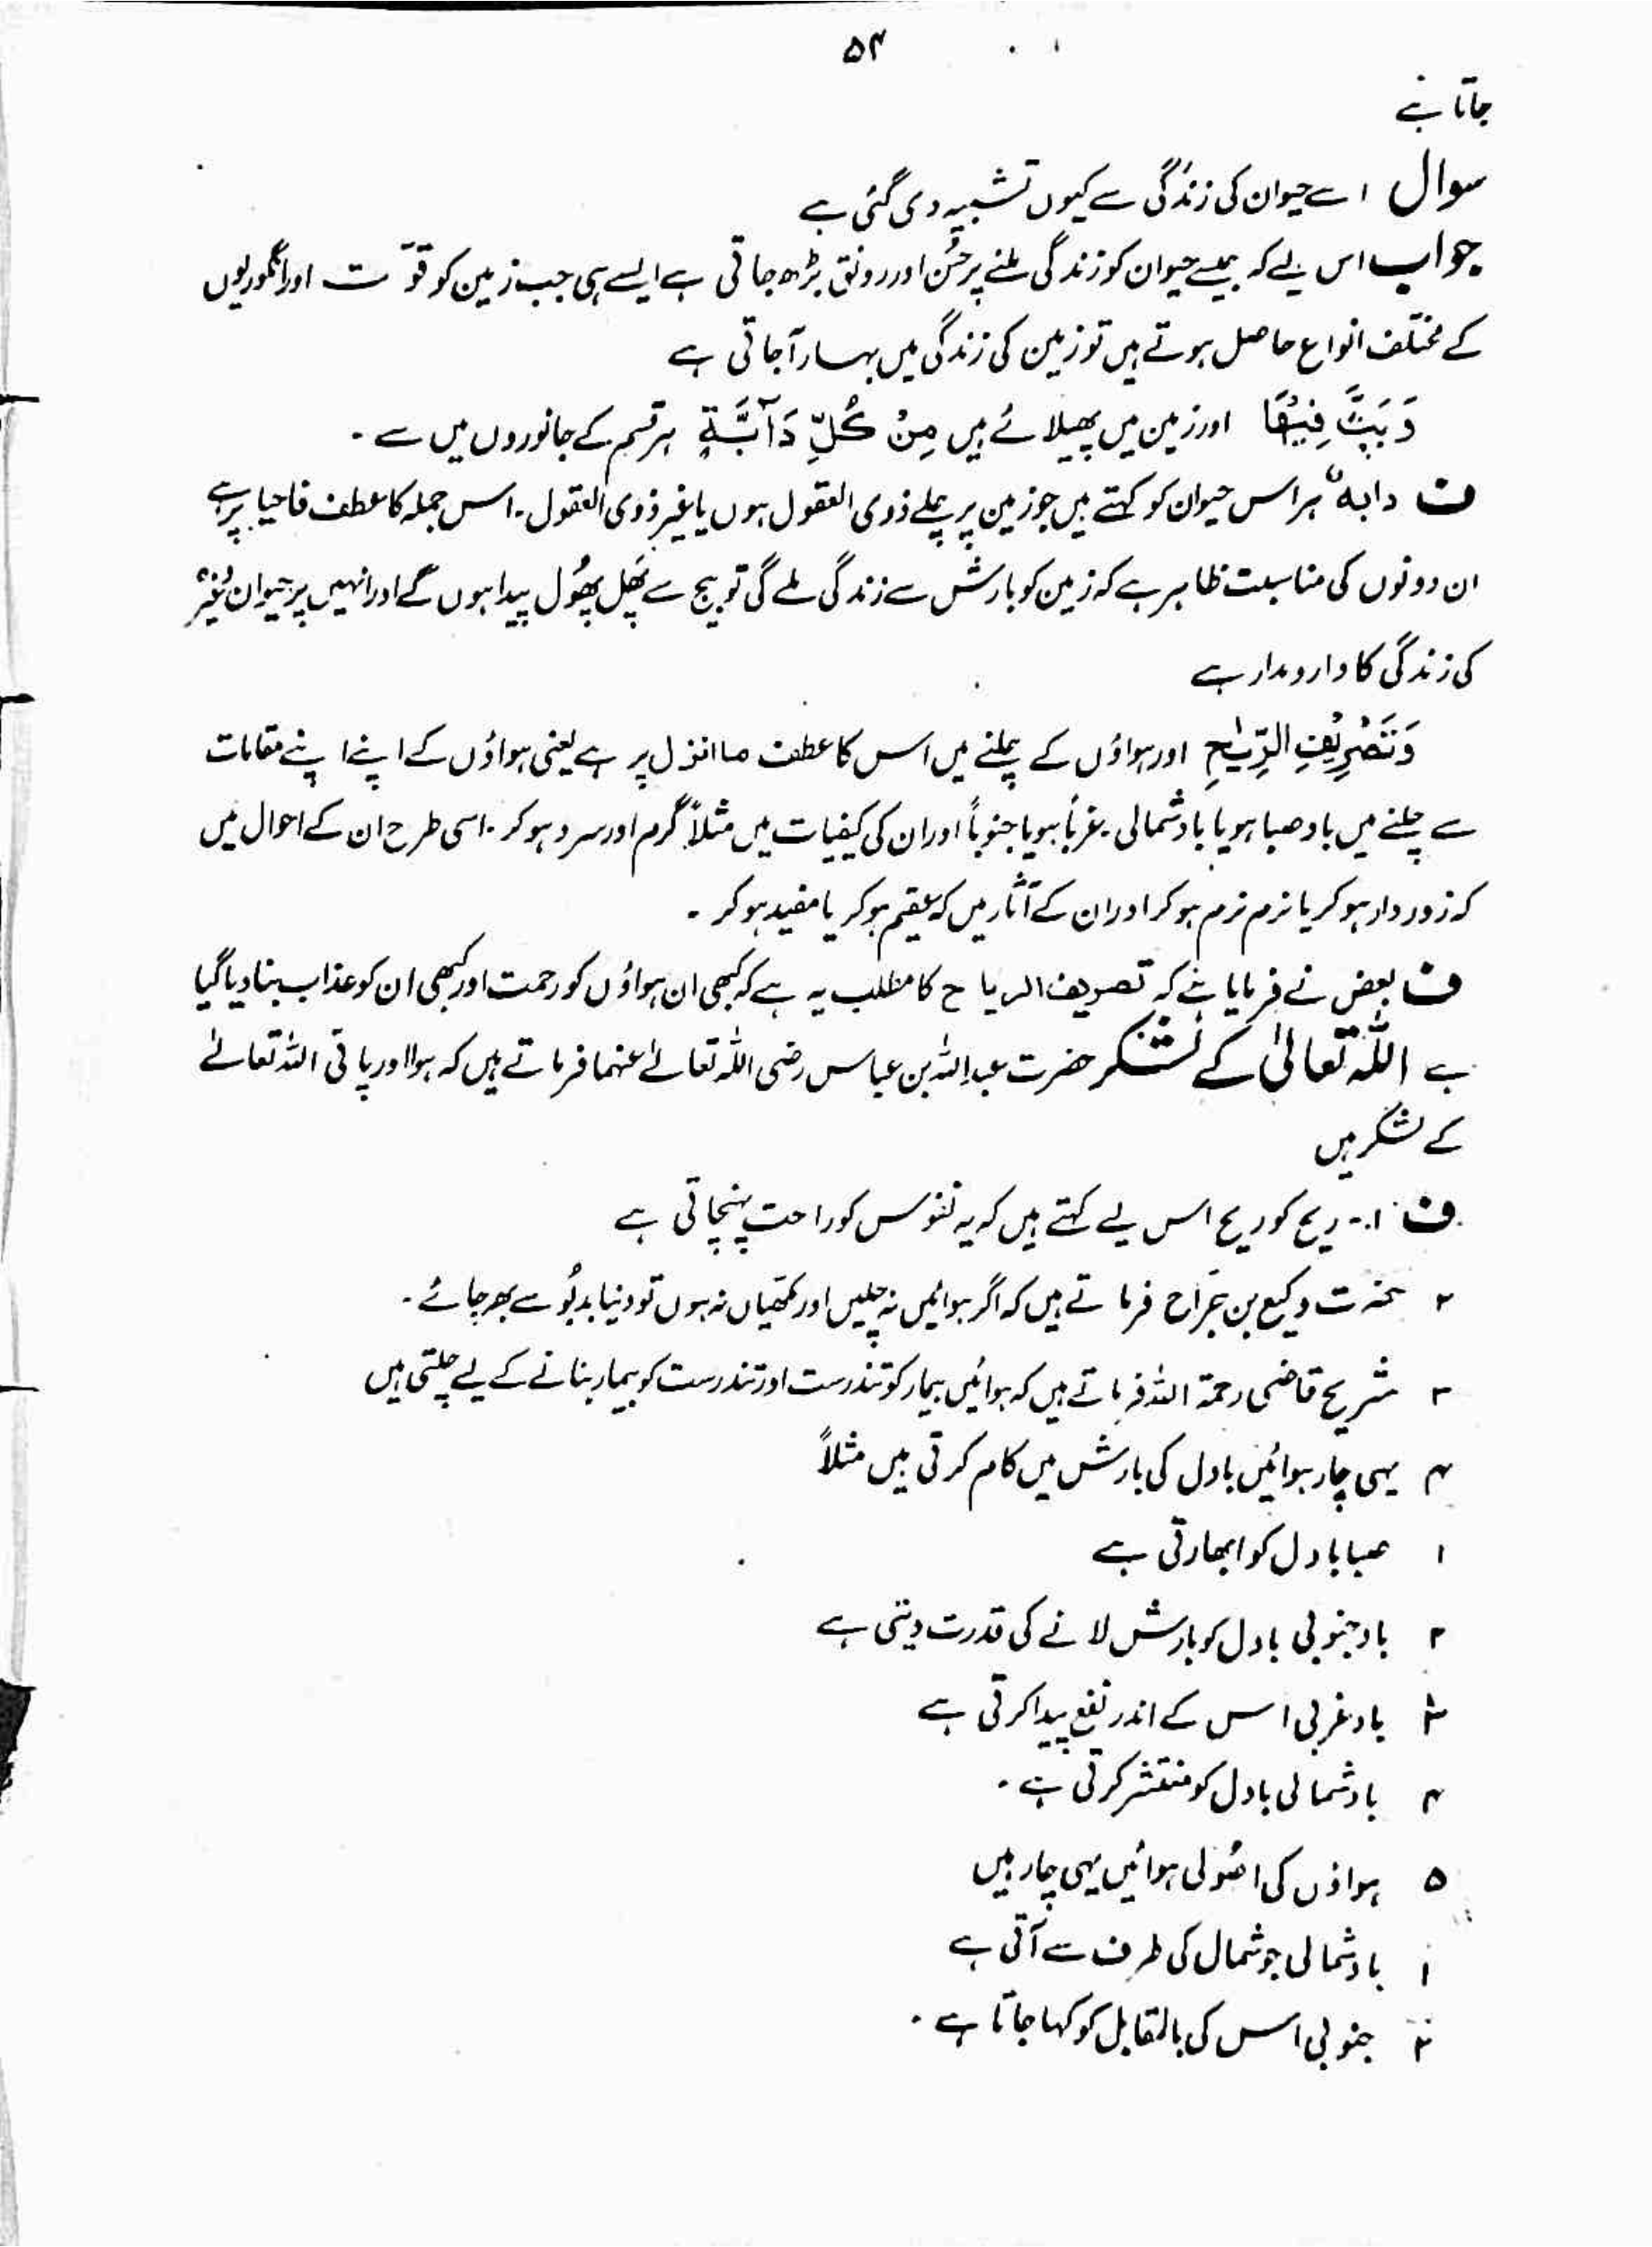 ۵۴
جاتا ہے
سوال اسے حیوان کی زندگی سے کیوں تشبیہ دی گئی ہے
جواب اس لیے کہ جیسے حیوان کو زندگی ملنے پر حُسن اور رونق بڑھ جاتی ہے ایسے ہی جب زمین کو قوّت اور انگوریوں
کے مختلف انواع حاصل ہوتے ہیں تو زمین کی زندگی میں بہار آجاتی ہے
وَبَثَّ فِيْهَا اور زمین میں پھیلائے ہیں مِنْ كُلِّ دَآبَّةٍ ہر قسم کے جانوروں میں سے ۔
ف دابہ ہر اس حیوان کو کہتے ہیں جو زمین پر چلے ذوی العقول ہوں یا غیر ذوی العقول ۔ اس جملہ کا عطف فاحیا پر ہے
ان دونوں کی مناسبت ظاہر ہے کہ زمین کو بارش سے زندگی ملے گی تو بیج سے پھَل پھُول پیدا ہوں گے اور انہیں پر حیوان وغیرہ
کی زندگی کا دارومدار ہے
وَتَصْرِيْفِ الرِّيٰحِ اور ہواؤں کے چلنے میں اس کا عطف ما انزل پر ہے یعنی ہواؤں کے اپنے اپنے مقامات
سے چلنے میں باد صبا ہو یا باد شمالی ۔ غرباً ہو یا جنوباً اور ان کی کیفیات میں مثلاً گرم اور سرد ہو کر ۔ اسی طرح ان کے احوال میں
کہ زور دار ہو کر یا نرم نرم ہو کر اور ان کے آثار میں کہ عقیم ہو کر یا مفید ہو کر ۔
ف بعض نے فرمایا ہے کہ تصریف الریاح کا مطلب یہ ہے کہ کبھی ان ہواؤں کو رحمت اور کبھی ان کو عذاب بنا دیا گیا
ہے اللہ تعالیٰ کے لشکر حضرت عبداللہ بن عباس رضی اللہ تعالےٰ عنہما فرماتے ہیں کہ ہوا اور پانی اللہ تعالےٰ
کے لشکر ہیں
ف ۱۔ ریح کو ریح اس لیے کہتے ہیں کہ یہ نفوس کو راحت پہنچاتی ہے
۲ حضرت وکیع بن جَراح فرماتے ہیں کہ اگر ہوائیں نہ چلیں اور مکھیاں نہ ہوں تو دنیا بدبُو سے بھر جائے ۔
۳ شریح قاضی رحمۃ اللہ فرماتے ہیں کہ ہوائیں بیمار کو تندرست اور تندرست کو بیمار بنانے کے لیے چلتی ہیں
۴ یہی چار ہوائیں بادل کی بارش میں کام کرتی ہیں مثلاً
۱ صبا بادل کو ابھارتی ہے
۲ باد جنوبی بادل کو بارش لانے کی قدرت دیتی ہے
۳ باد غربی اس کے اندر نفع پیدا کرتی ہے
۴ باد شمالی بادل کو منتشر کرتی ہے ۔
۵ ہواؤں کی اصُولی ہوائیں یہی چار ہیں
۱ باد شمالی جو شمال کی طرف سے آتی ہے
۲ جنوبی اس کی بالمقابل کو کہا جاتا ہے ۔